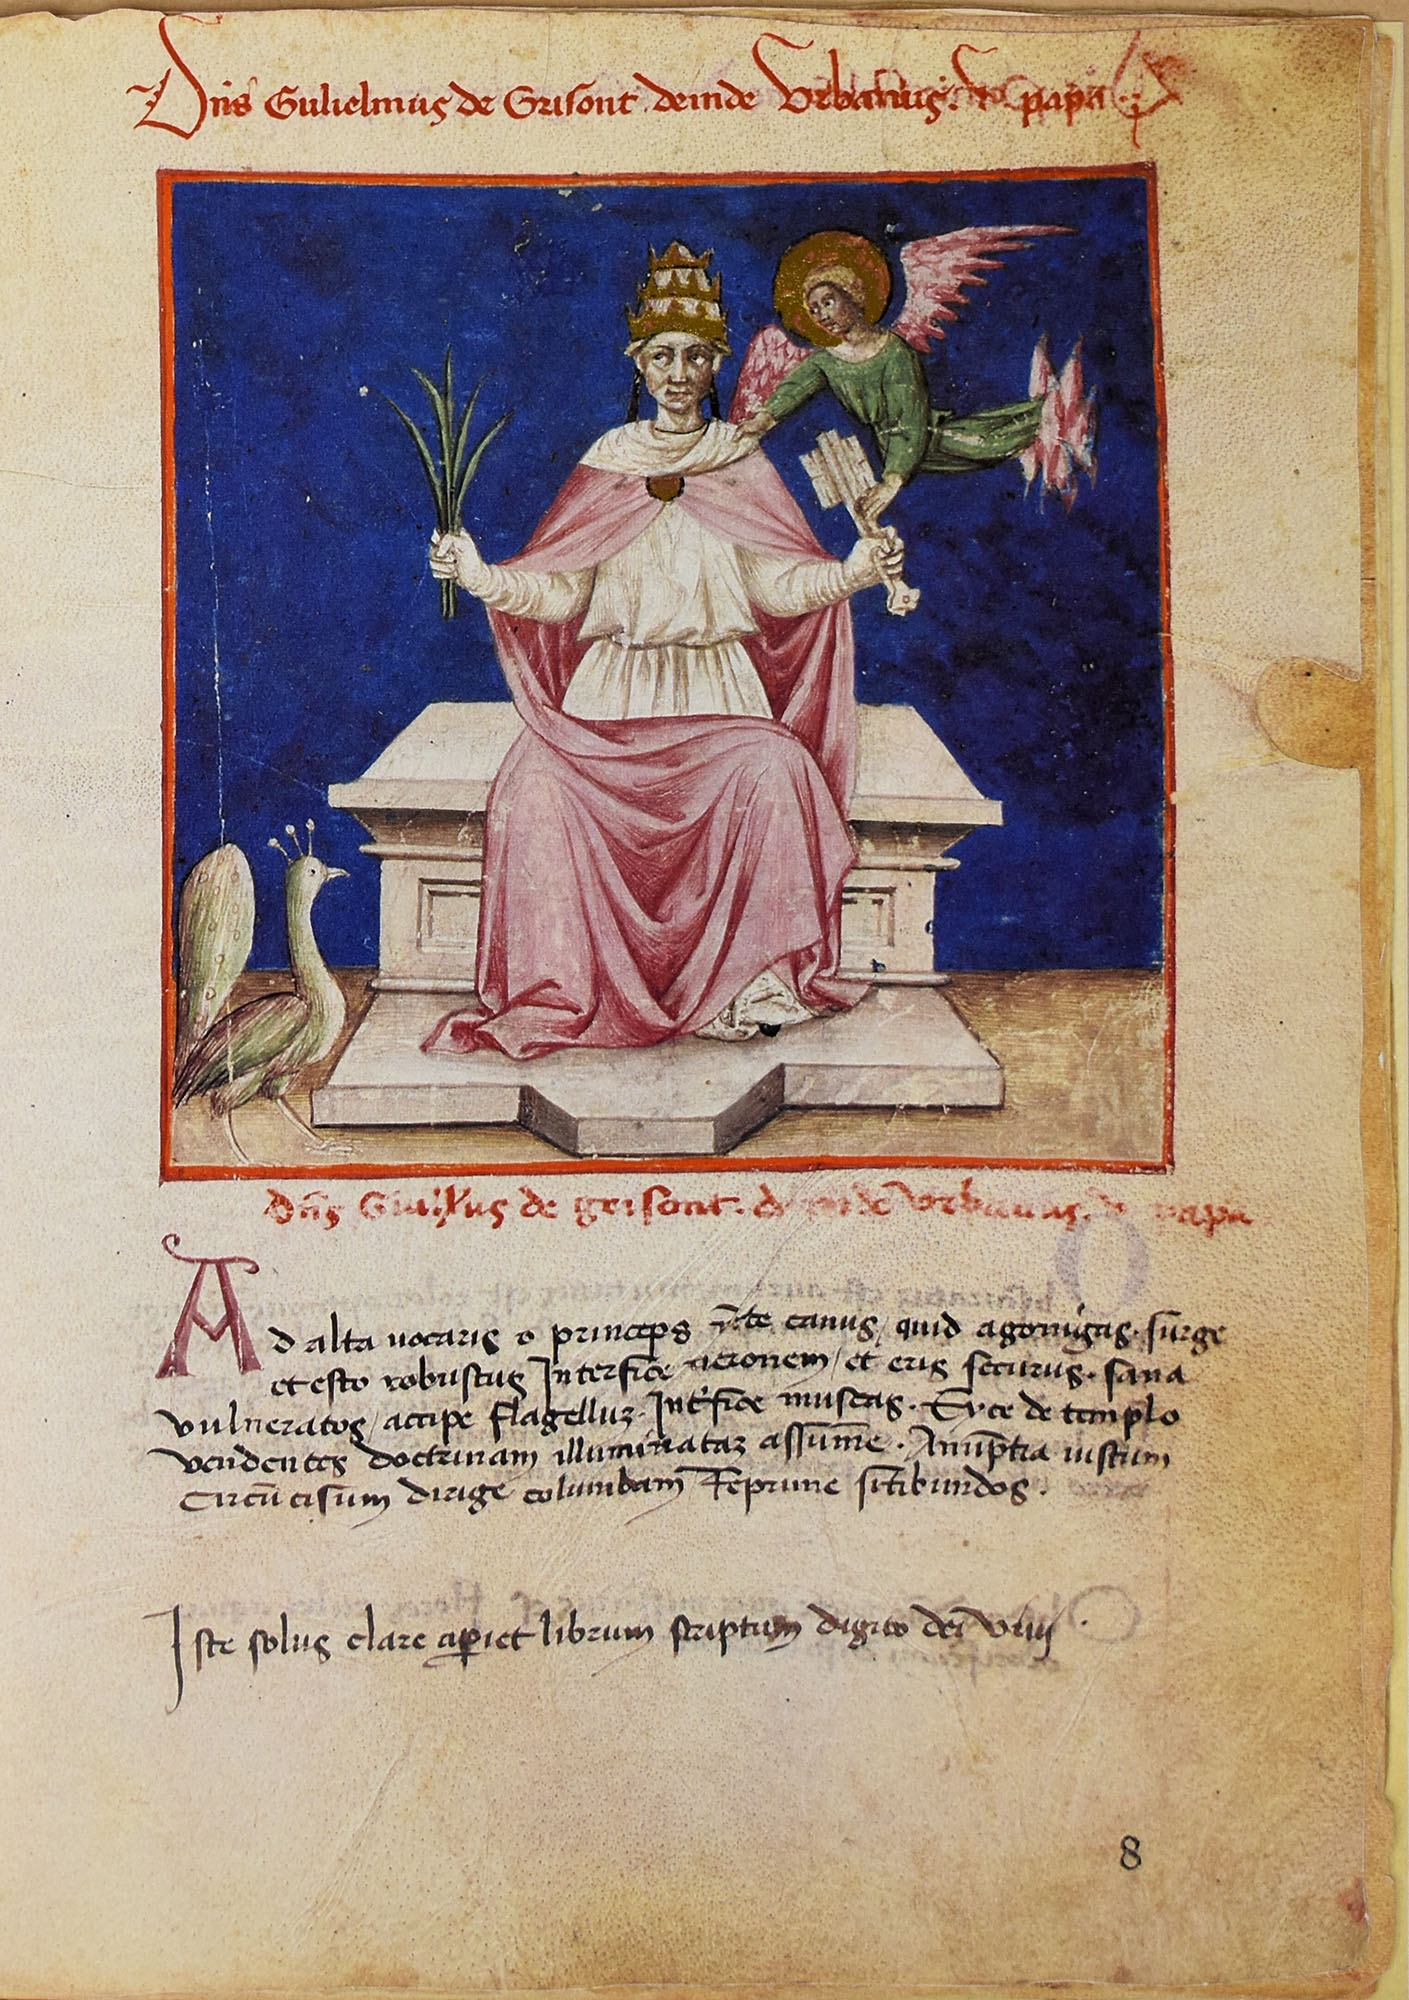 Dn̄s Gulielmus de Grisont deinde Vrbanus. papa
Dn̄s de grisont. deinde Vrbanus. papa
Ad alta uocaris o princeps canus, quid agonigas. surge
et esto robustus Interfice neronem, et eris securus. sana
vulneratos, accipe flagelluz. Int'fice muscas. Eyce de templo
vendentes doctrinam illuminataz assūme. iustum
Circūcisum dirige columbam Reprime sitibundos.
Iste solus clare apiet librum scriptum digito dei viui.
8